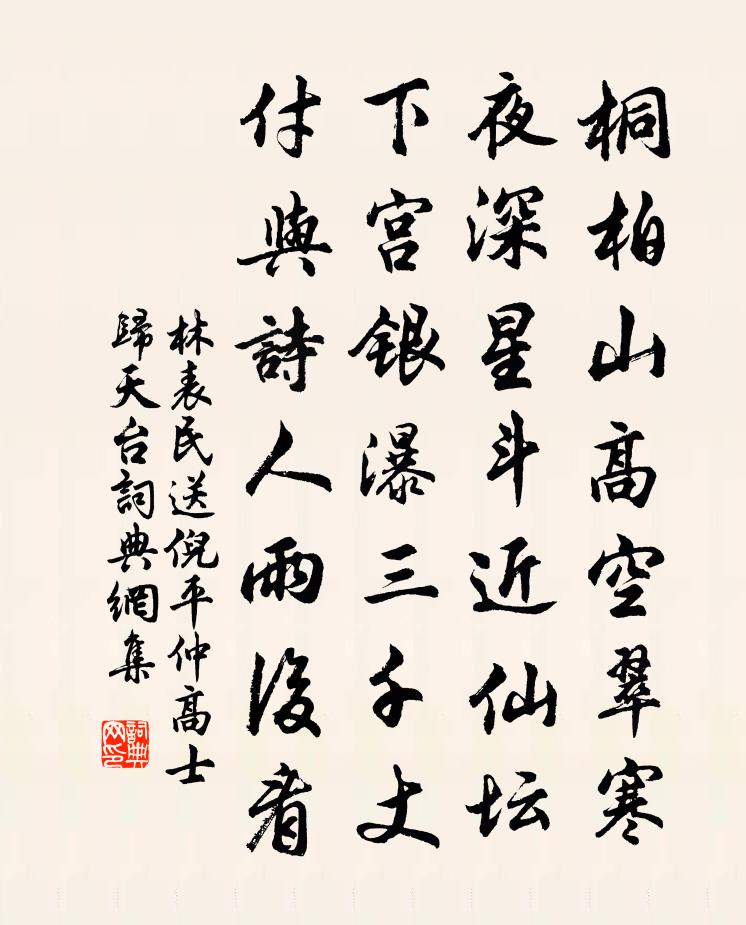 桐柏山高空翠寒
夜深星斗近仙坛
下宫银瀑三千丈
付與詩人雨後看
林表民送倪平仲高士
歸天台詞典網集
詞典
网印